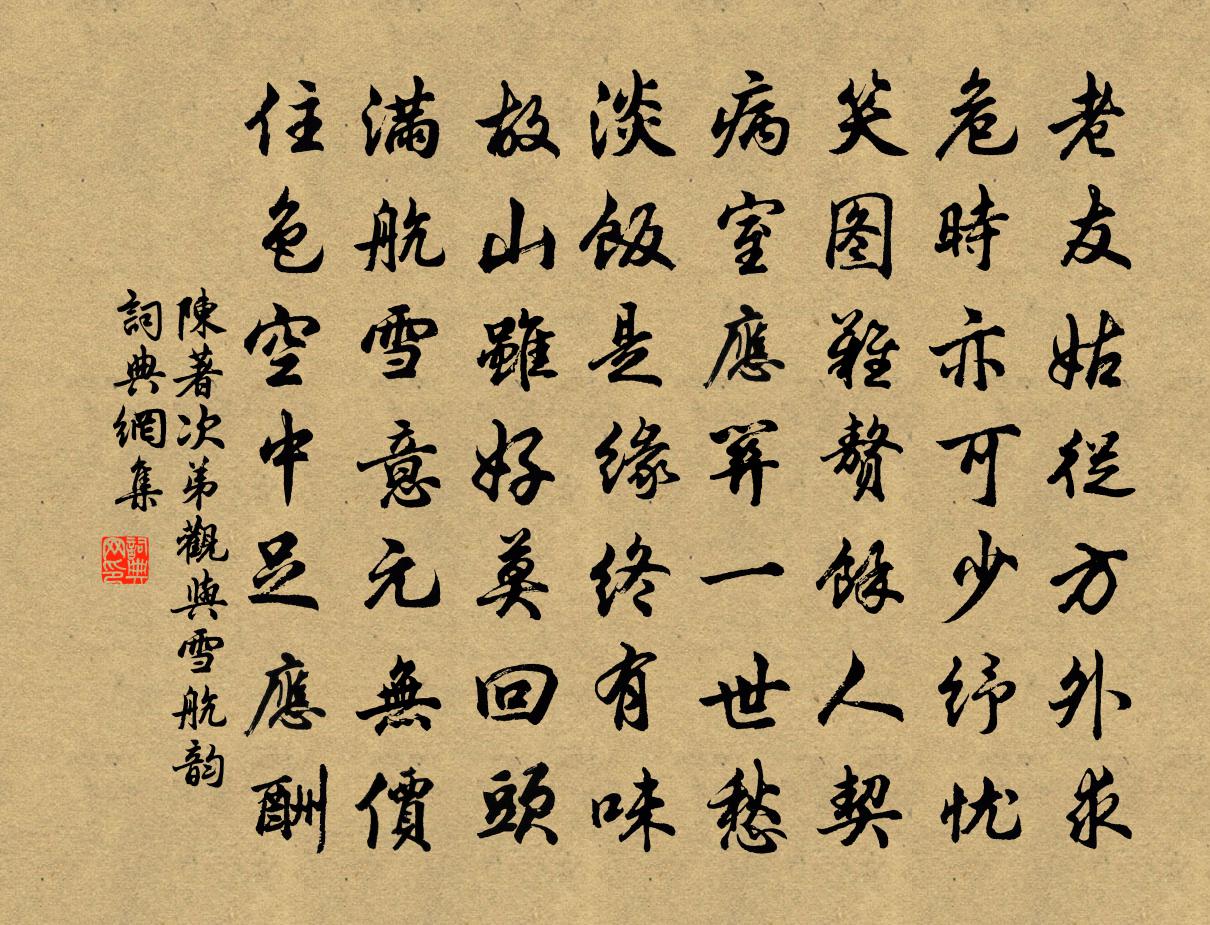 老友姑從方外求
危時亦可少紓忧
笑图難贅餘人契
病室應羿一世愁
淡飯是緣終有味
故山雖好莫回頭
滿航雪意元無價
住色空中足應酬
陳著次弟觀與雪航韵
詞典網集
詞典网印